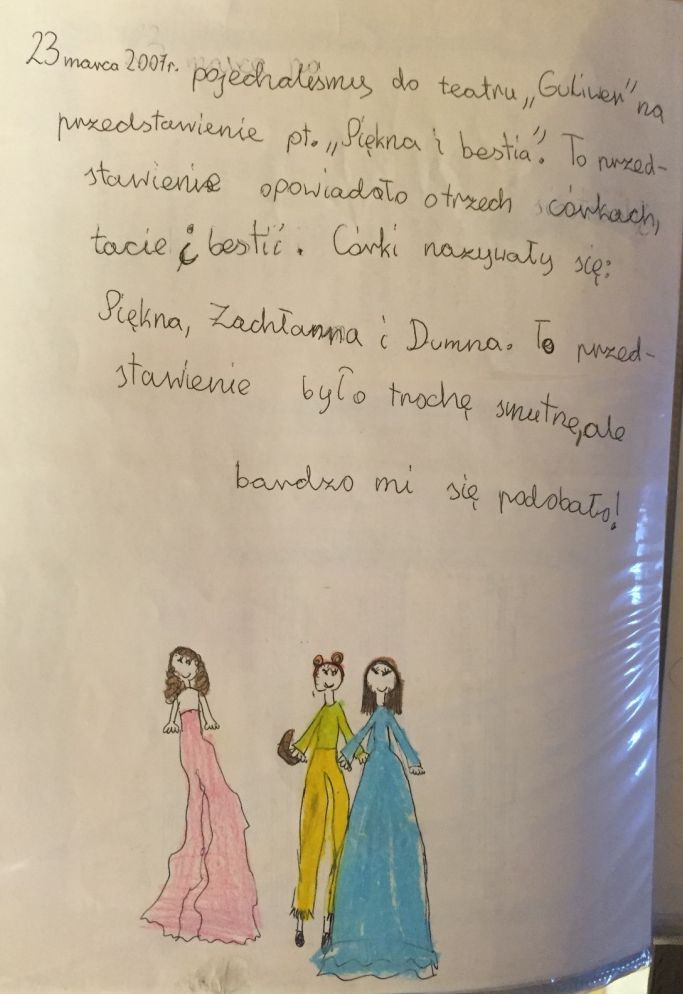 23 marca 2007r. pojechaliśmy do teatru „Guliwer” na
przedstawienie pt. „Piękna i bestia”. To przed-
stawienie opowiadało o trzech córkach,
tacie i bestii. Córki nazywały się:
Piękna, Zachłanna i Dumna. To przed-
stawienie było trochę smutne, ale
bardzo mi się podobało!